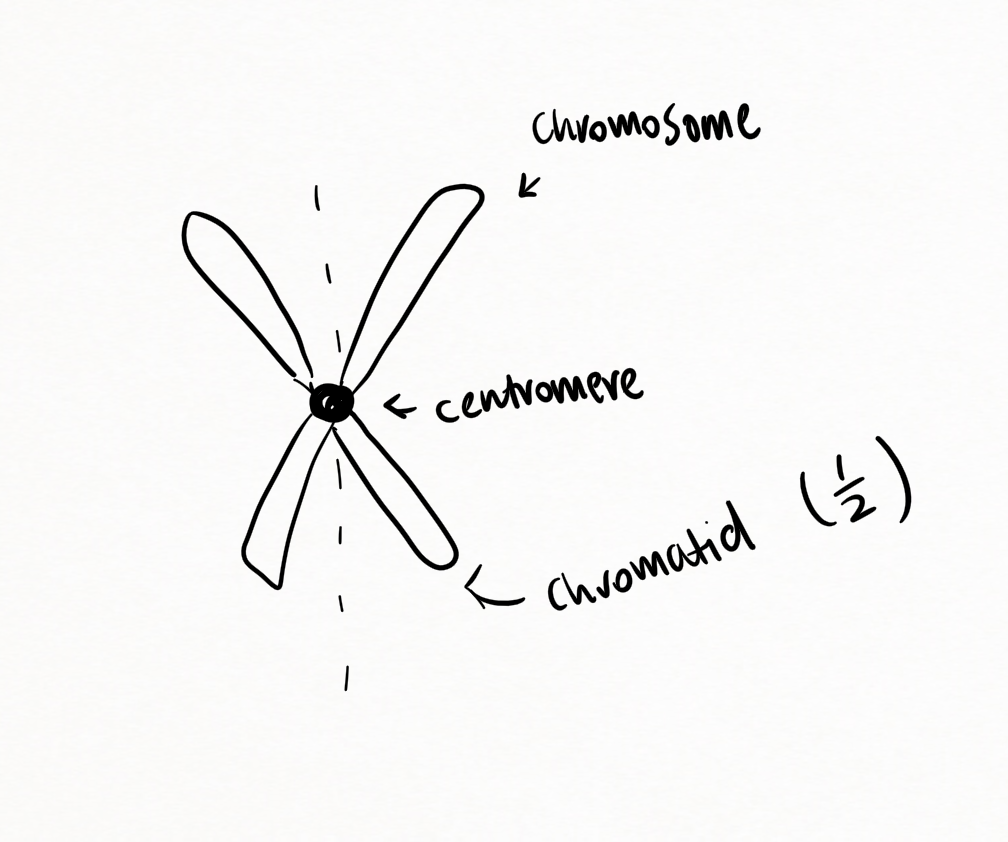 chromosome
centromere
chromatid (1/2)